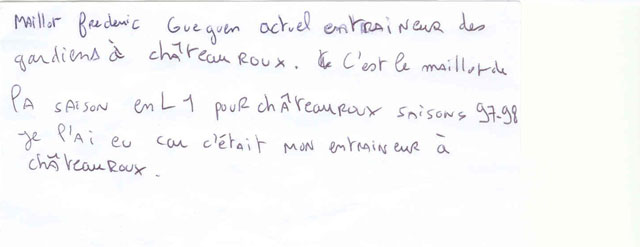 Maillot frederic Gueguen actuel entraineur des
gardiens à châteauroux. C'est le maillot de
la saison en L1 pour châteauroux saisons 97-98
je l'ai eu car c'était mon entraineur à
châteauroux.